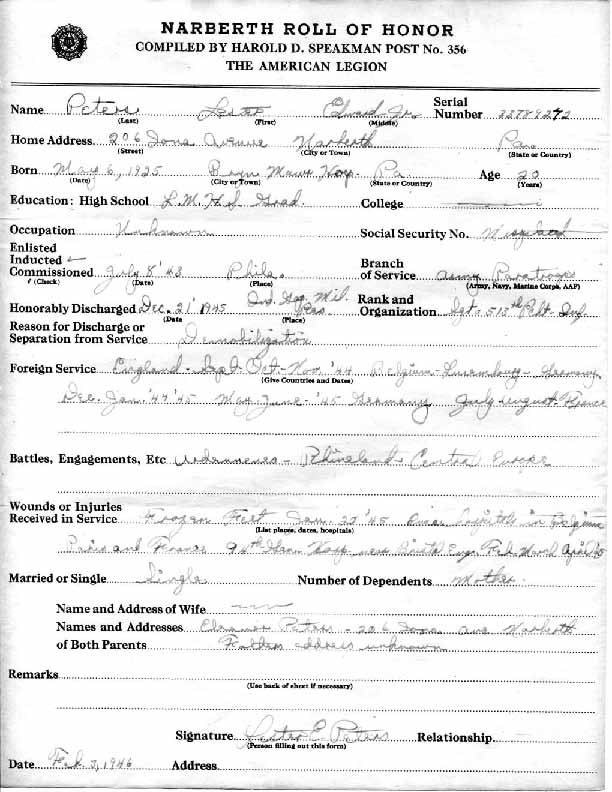 NARBERTH ROLL OF HONOR
COMPILED BY HAROLD D. SPEAKMAN POST No. 356
THE AMERICAN LEGION
Name Peters Lester Edward Jr. Serial Number 33789272
(Last) (First) (Middle)
Home Address 206 Iona Avenue Narberth Pa.
(Street) (City or Town) (State or Country)
Born May 6, 1925 Bryn Mawr Hosp. Pa. Age 20
(Date) (City or Town) (State or Country) (Years)
Education: High School L.M.H.S. Grad. College
Occupation Unknown Social Security No. Misplaced
Enlisted
Inducted ✓
Commissioned July 8 '43 Phila. Branch of Service Army Paratroops
(Check) (Date) (Place) (Army, Navy, Marine Corps, AAF)
Honorably Discharged Dec. 21 1945 Ind. Gap Mil. Res. Rank and Organization Sgt. 513th Inf.
(Date (Place)
Reason for Discharge or
Separation from Service Demobilization
Foreign Service England - Sept. Oct. - Nov. '44 Belgium - Luxembourg - Germany
(Give Countries and Dates)
Dec. Jan. '44 '45 May June - '45 Germany July August - France
Battles, Engagements, Etc Ardennes - Rhineland - Central Europe
Wounds or Injuries
Received in Service Frozen Feet Jan. '45 in Belgium
(List places, dates, hospitals)
Paris and France 94th Gen. Hosp. near Eng. Feb. March April '45
Married or Single Single Number of Dependents Mother
Name and Address of Wife
Names and Addresses Eleanor Peters - 206 Iona Ave Narberth
of Both Parents Fathers address unknown
Remarks
(Use back of sheet if necessary)
Signature Lester E. Peters Relationship
(Person filling out this form)
Date Feb. 3, 1946 Address